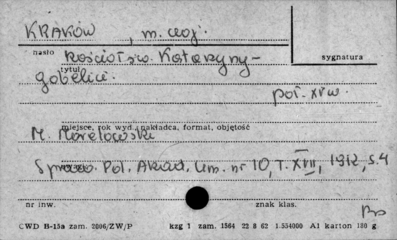 KRAKÓW, m. woj.
hasło Kościół św. Katarzyny-
sygnatura
tytuł
gobelin.
poł. XV w.
miejsce, rok wyd., nakładca, format, objętość
M. Morelowski
Sprawo. Pol. Akad. Um. nr 10, T. XVII, 1912, s. 4
nr inw. znak klas.
CWD B-15a zam. 2006/ZW/P kzg 1 zam. 1564 22 8 62 1.554000 A1 karton 180 g